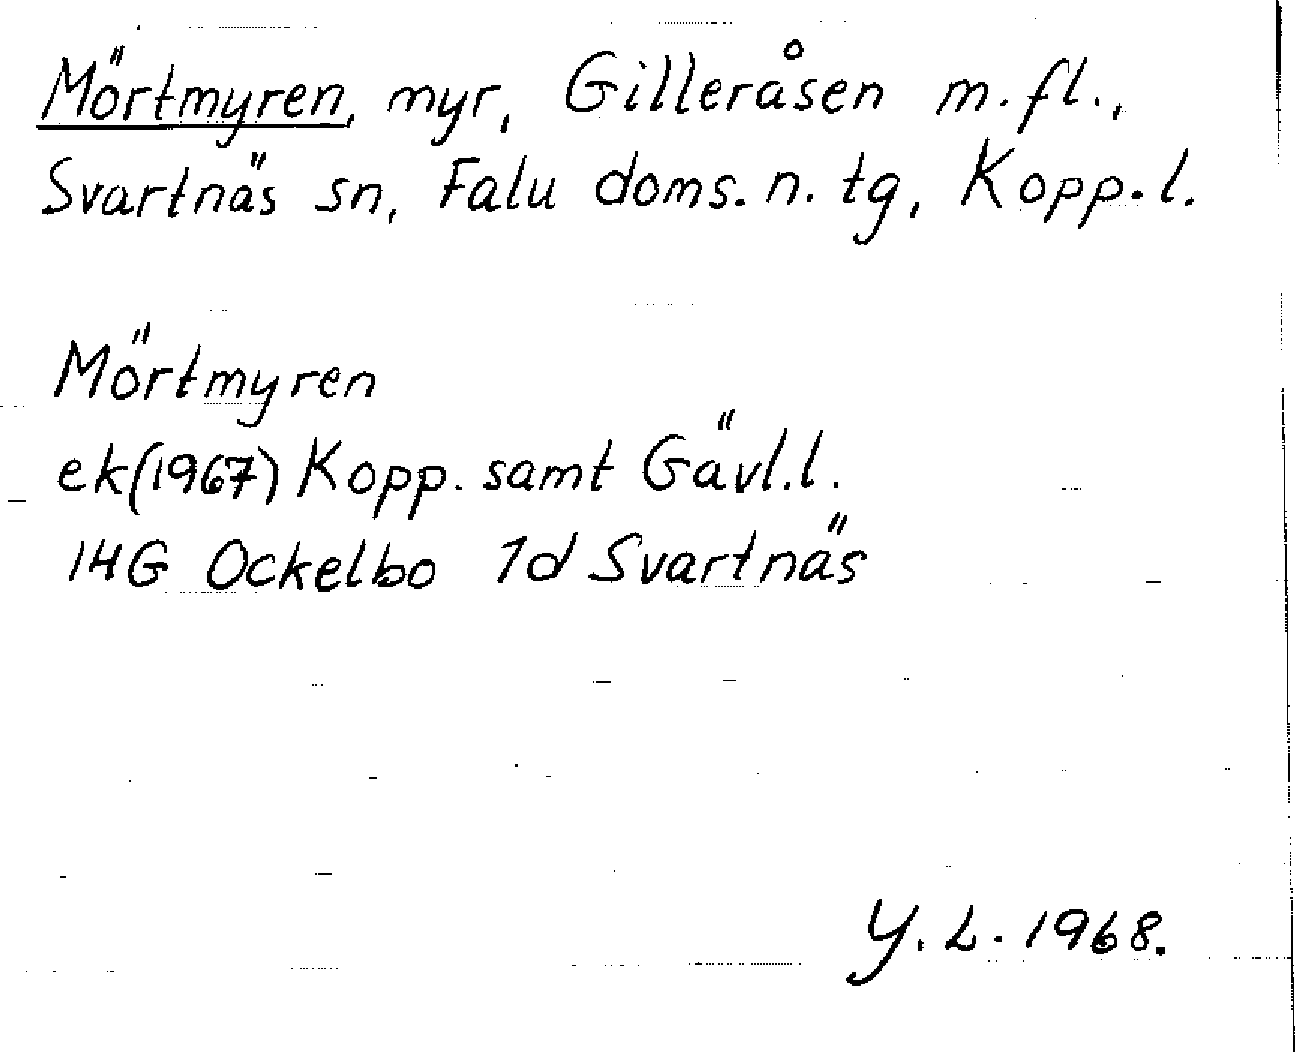 Mörtmyren, myr, Gilleråsen m.fl.,
Svartnäs sn, Falu doms. n. tg, Kopp.l.
Mörtmyren
ek(1967) Kopp. samt Gävl.l.
14G Ockelbo 1d Svartnäs
Y.L. 1968.